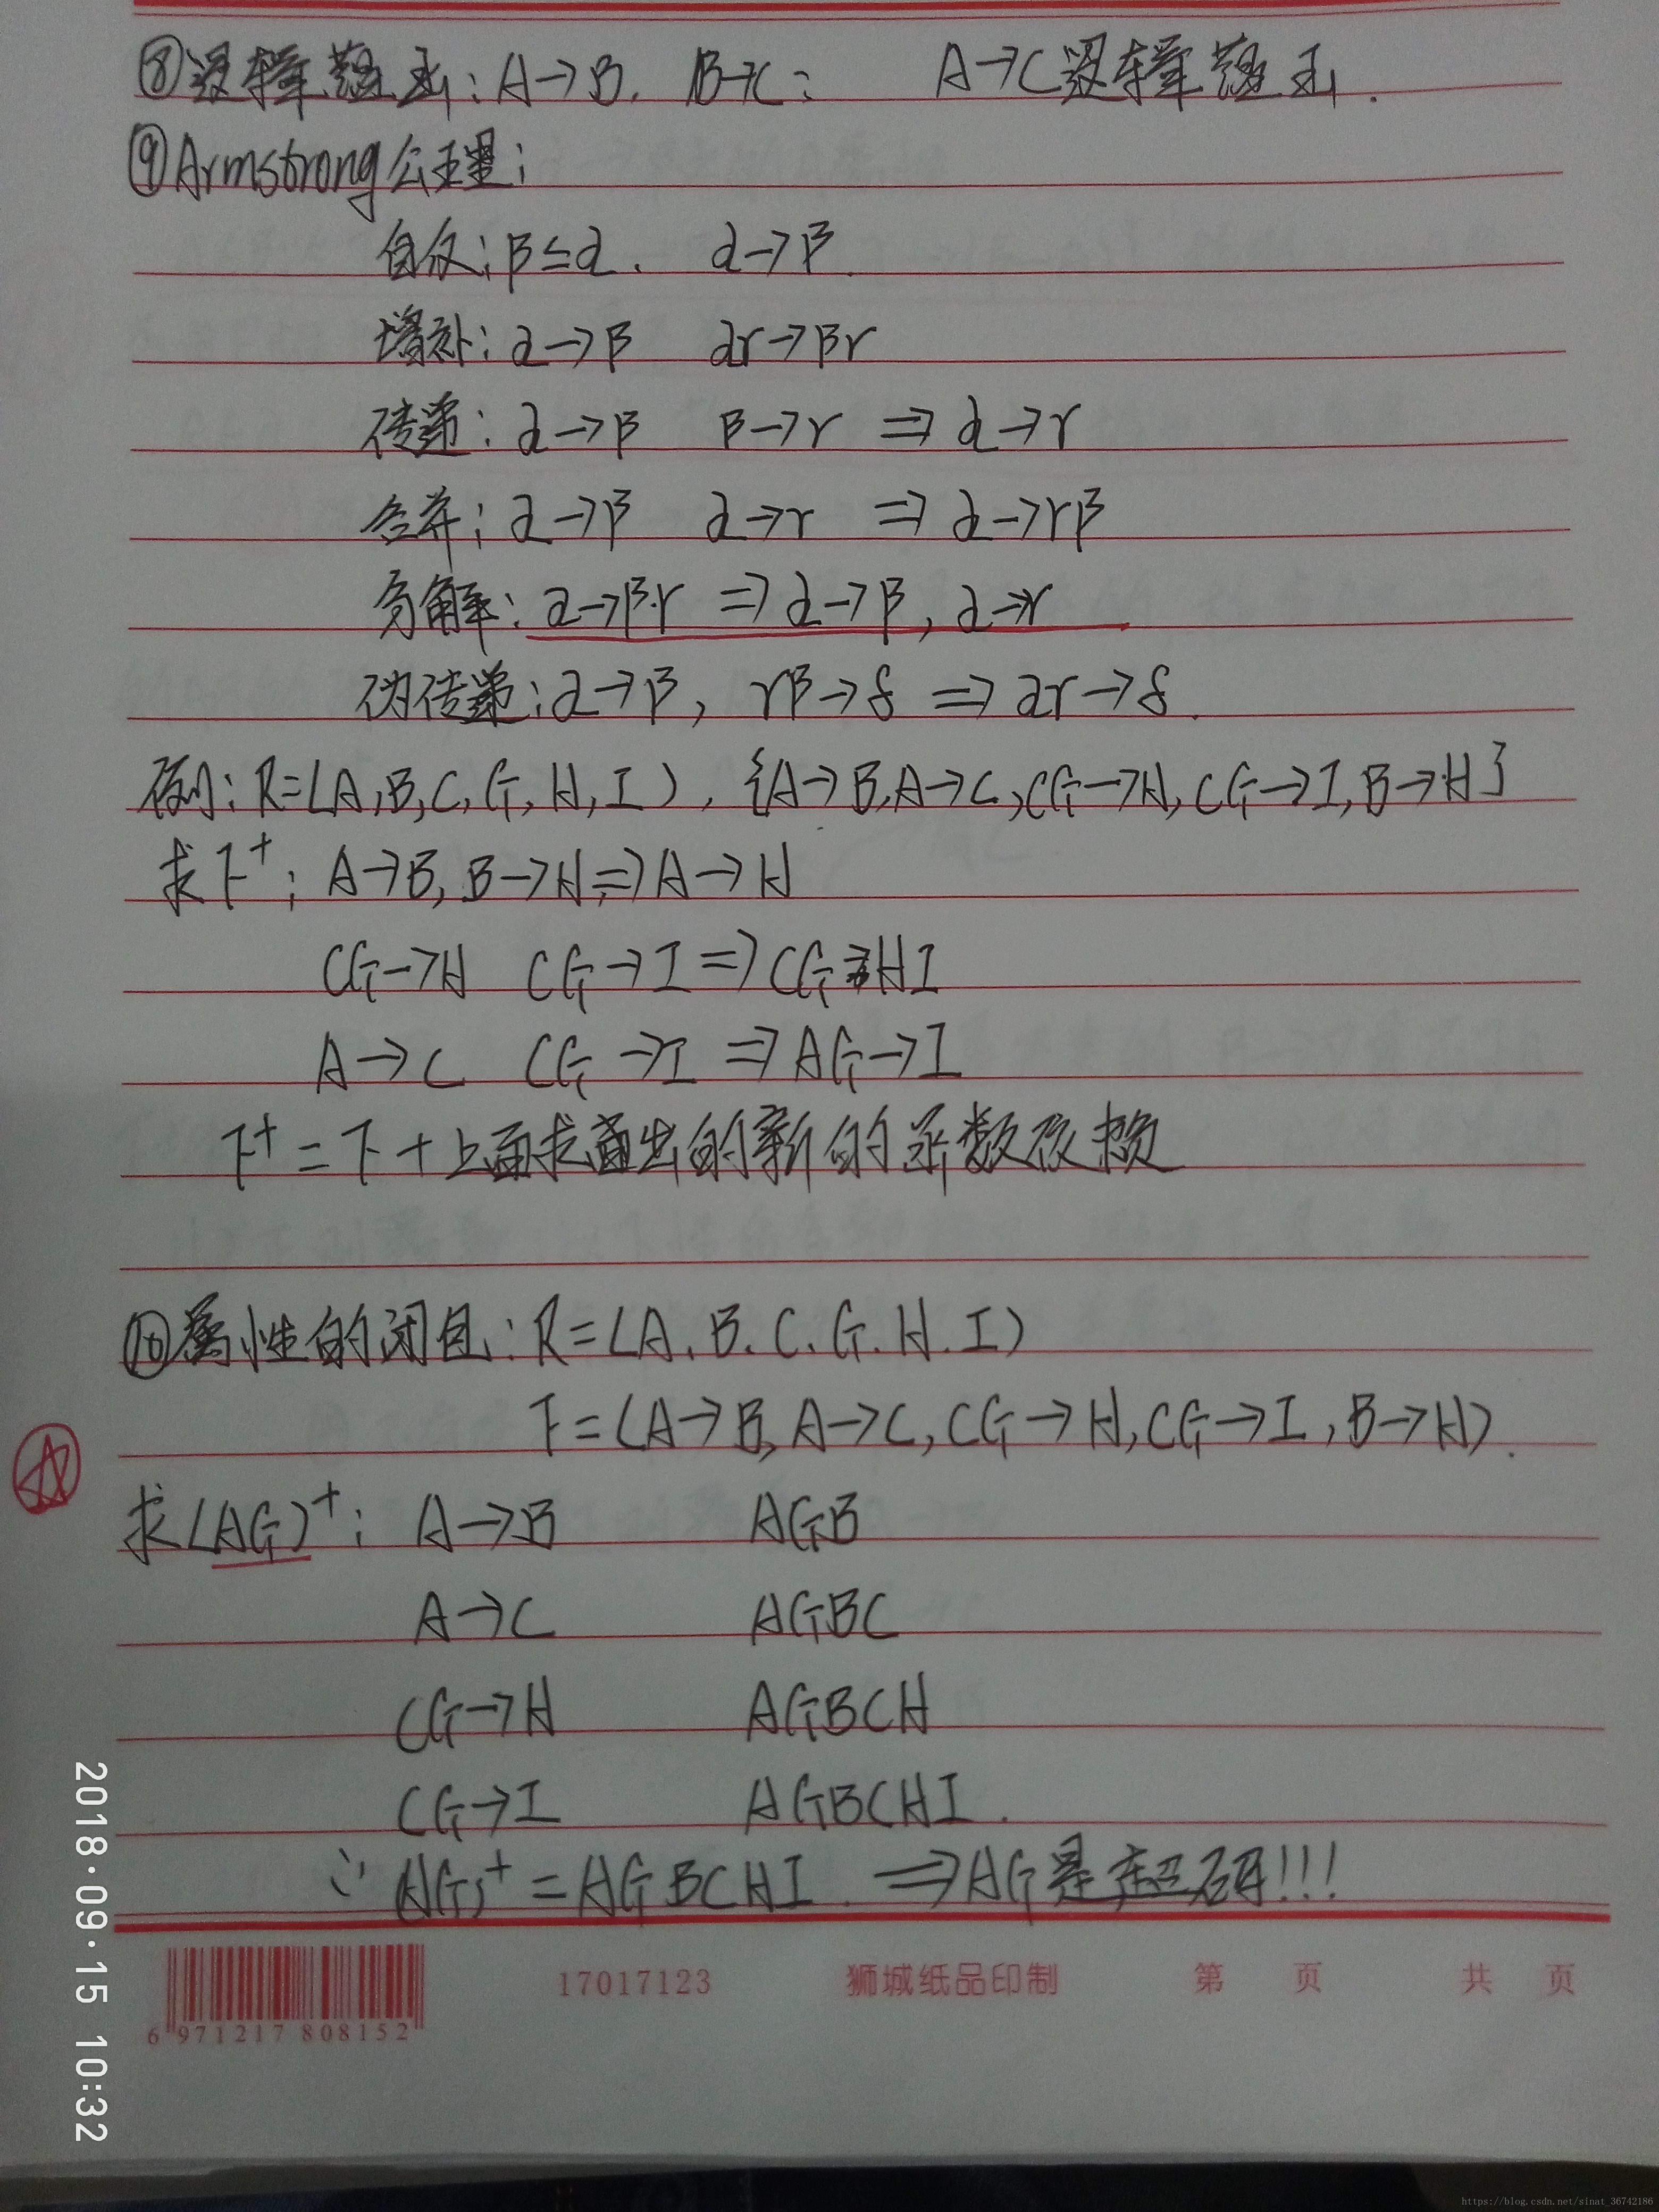 ⑧逻辑蕴涵:A→B. B→C: A→C逻辑蕴涵.
⑨Armstrong公理:
自反:β⊆α. α→β.
增补:α→β αr→βr
传递:α→β β→r ⇒ α→r
合并:α→β α→r ⇒ α→rβ
分解:α→βr ⇒ α→β, α→r
伪传递:α→β, rβ→δ ⇒ αr→δ.
例:R=(A,B,C,G,H,I), {A→B,A→C,CG→H,CG→I,B→H}
求F⁺: A→B, B→H ⇒ A→H
CG→H CG→I ⇒ CG→HI
A→C CG→I ⇒ AG→I
F⁺=F+上面求出的新的函数依赖
⑩属性的闭包:R=(A.B.C.G.H.I)
F=(A→B,A→C,CG→H,CG→I,B→H).
求(AG)⁺: A→B AGB
A→C AGBC
CG→H AGBCH
CG→I AGBCHI.
∵(AG)⁺=AGBCHI. ⇒AG是超码!!!
17017123 狮城纸品印制 第 页 共 页
6 971217 808152
2018·09·15 10:32
https://blog.csdn.net/sinat_36742186